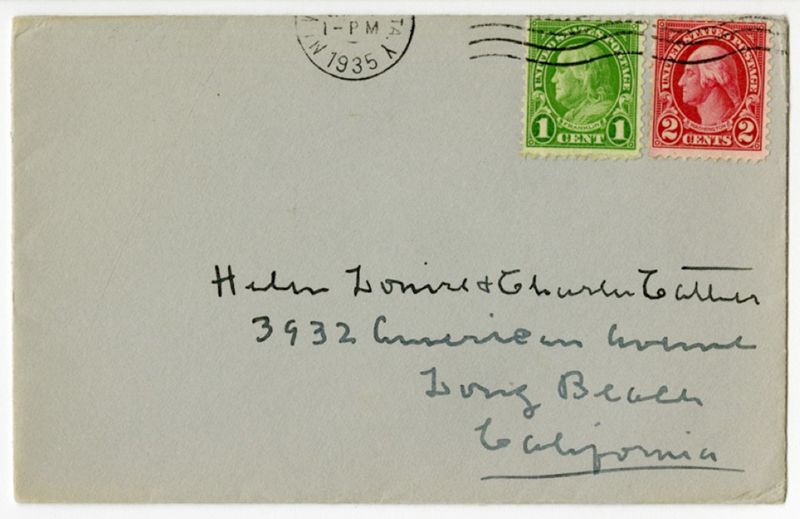 1-PM
1935
N.Y.
UNITED STATES POSTAGE
FRANKLIN
1 CENT 1
UNITED STATES POSTAGE
WASHINGTON
2 CENTS 2
Helen Louise & Charles Cather
3932 American Avenue
Long Beach
California